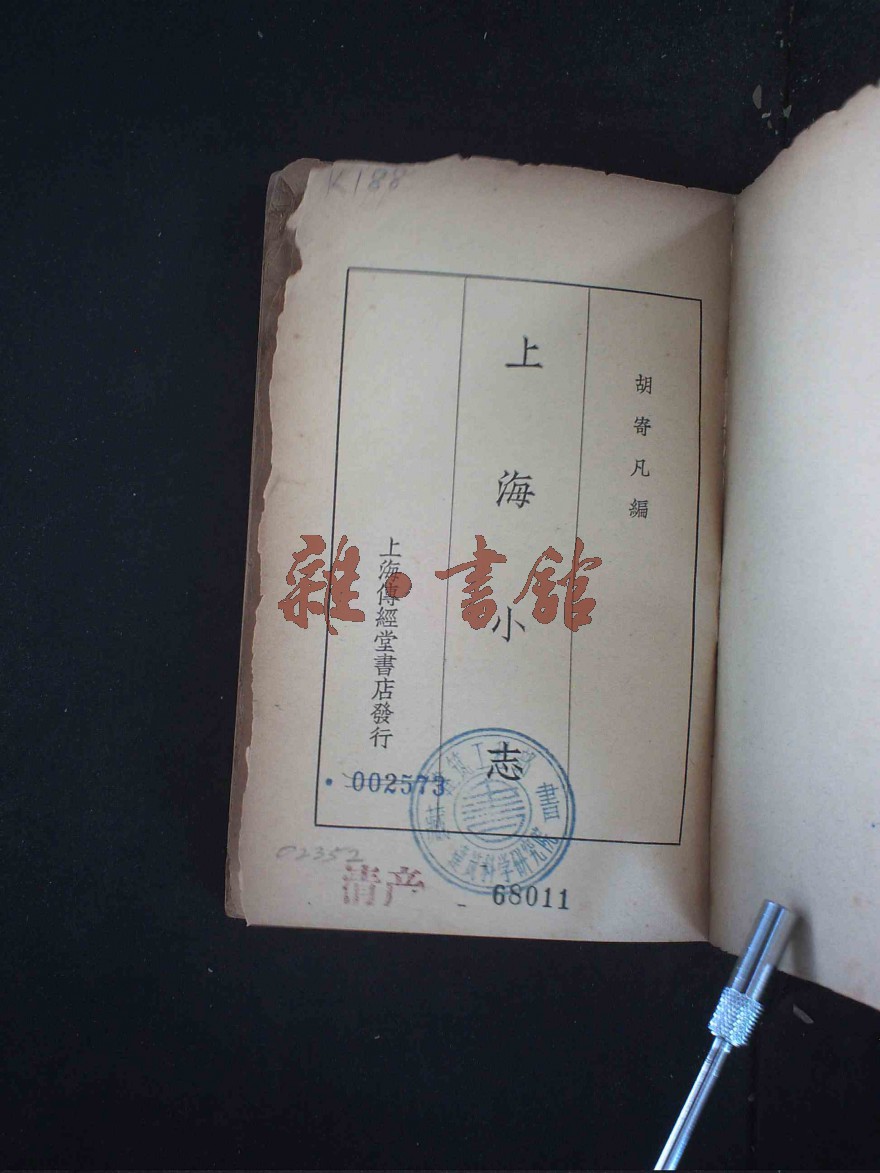 K188
胡寄凡編
上海小志
上海傳經堂書店發行
雜·書館
002573
02352
清产
68011